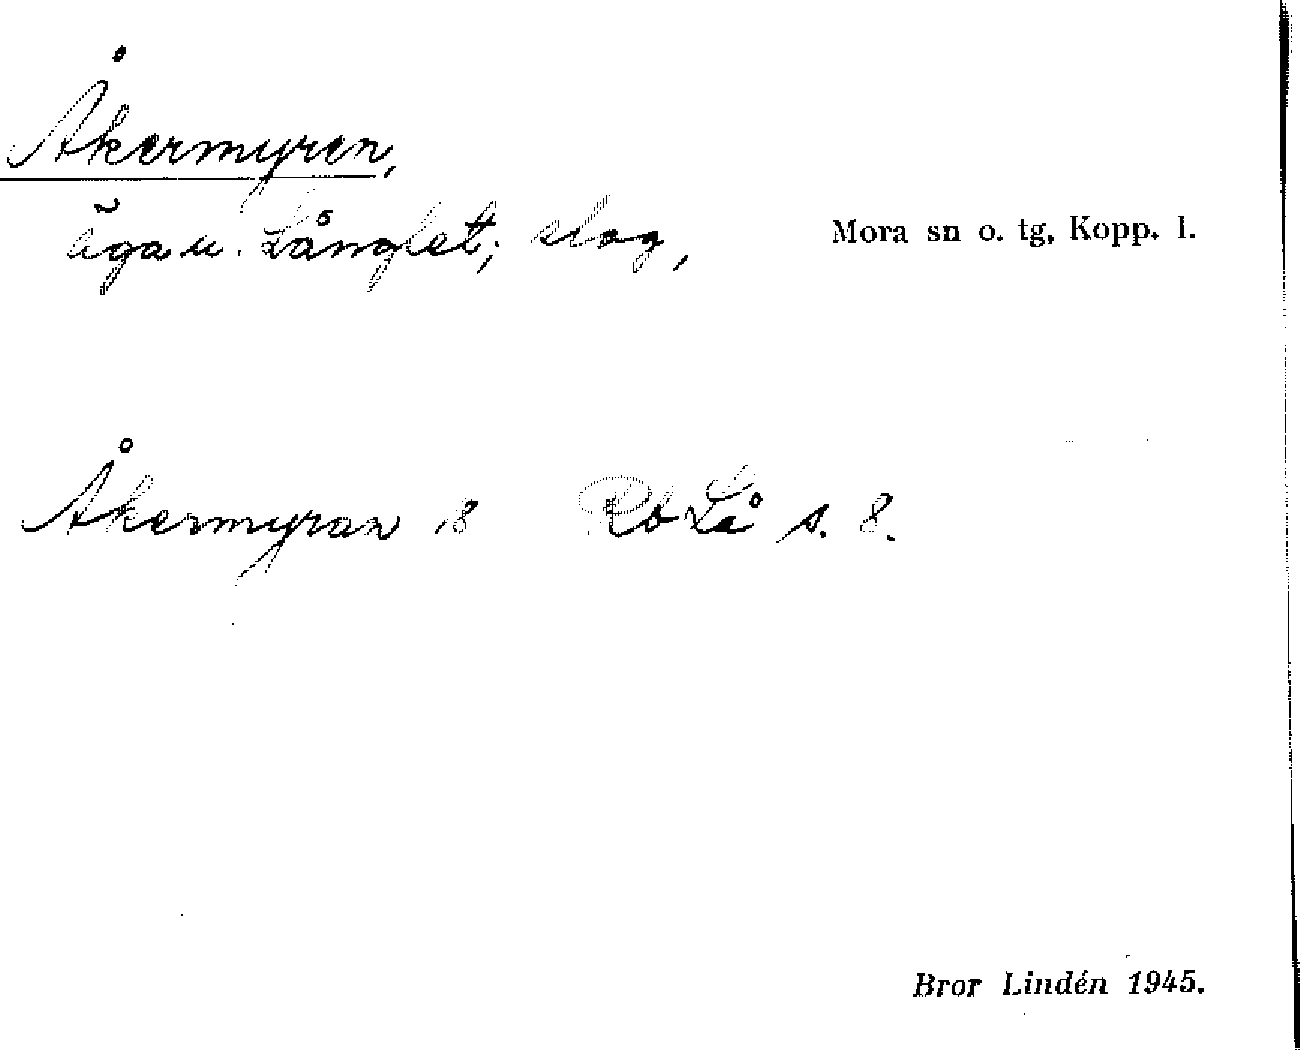 Åkermyren,
äga u. Långlet; slog,
Mora sn o. tg, Kopp. l.
Åkermyran 18 Rb Lå s. 8.
Bror Lindén 1945.